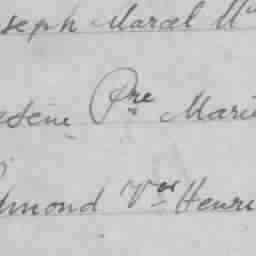 oseph Marcel M
esène Pre Marie
dmond Vor Henri